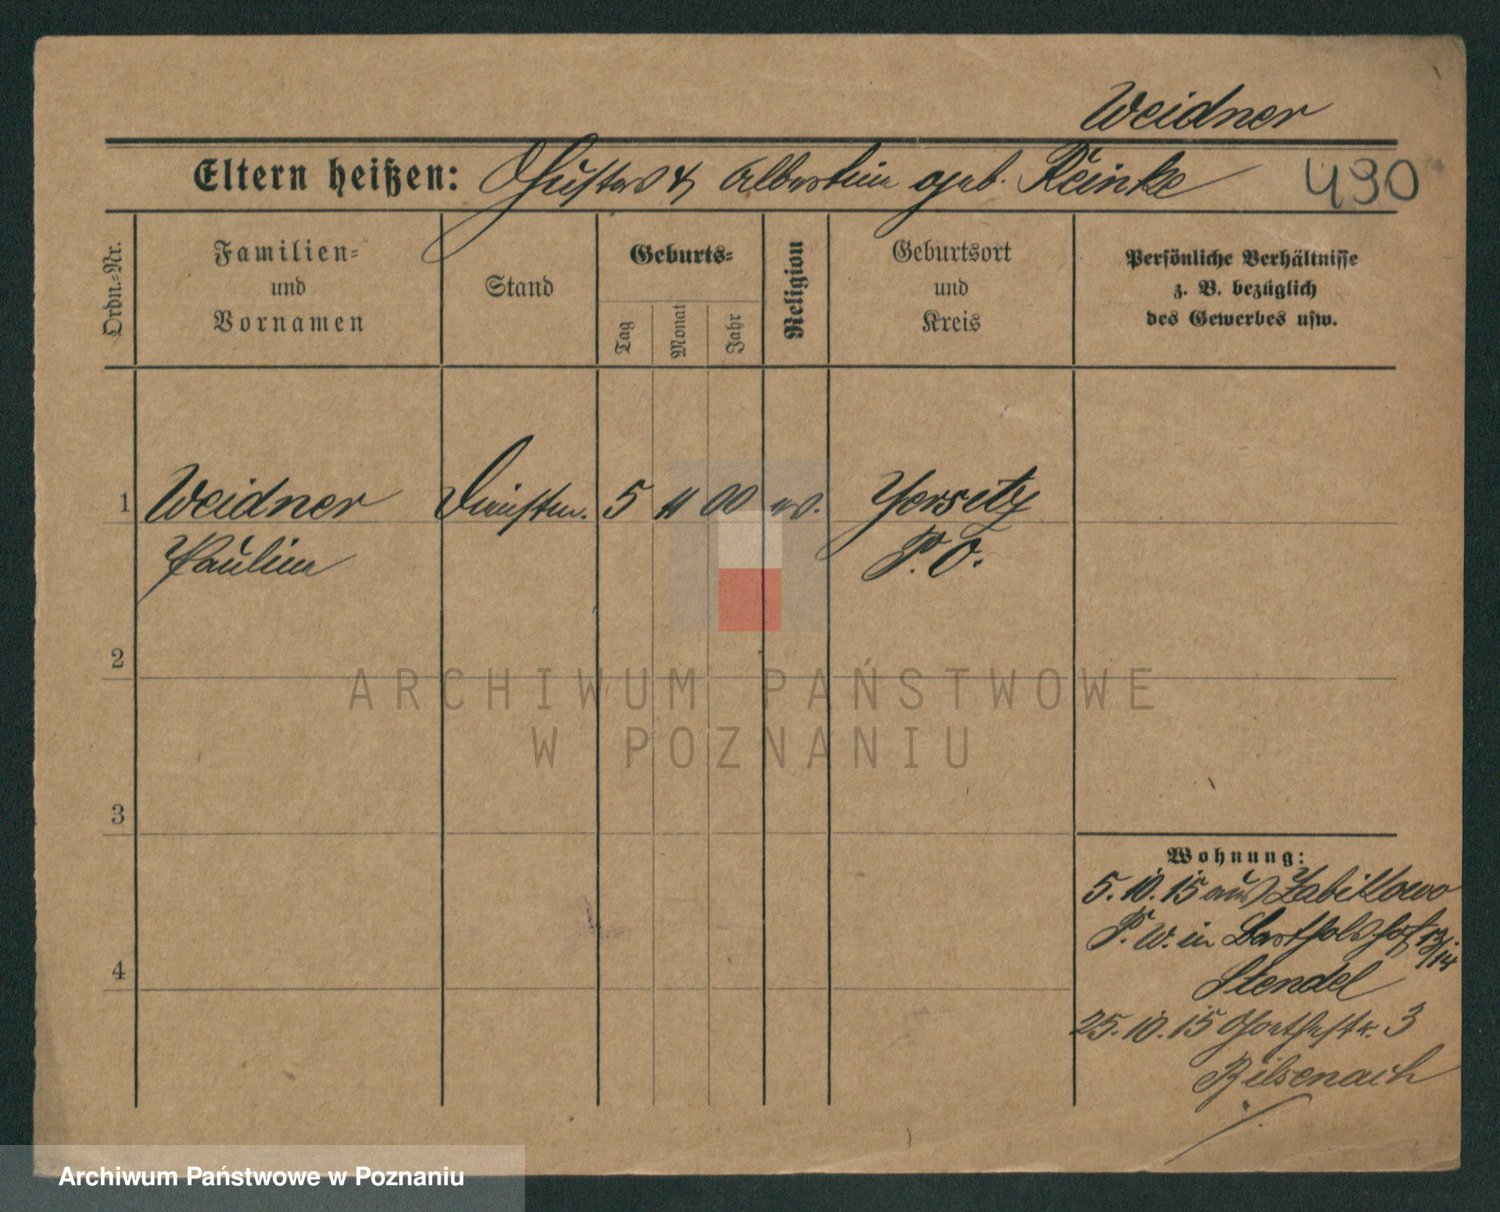 Weidner
Eltern heißen: Gustav & Albertine geb. Reinke 490
Ordn.=Nr.
Familien=
und
Vornamen
Stand
Geburts=
Tag
Monat
Jahr
Religion
Geburtsort
und
Kreis
Persönliche Verhältnisse
z. B. bezüglich
des Gewerbes usw.
1 Weidner Dienstm. 5 11 00 ev. Jersitz
Pauline P. O.
2
3
4
Wohnung:
5. 10. 15 aus Zabikowo
P. W. in Bartholdshof 13/14
Stendel
25. 10. 15 Goethestr. 3
ARCHIWUM PAŃSTWOWE
W POZNANIU
Archiwum Państwowe w Poznaniu